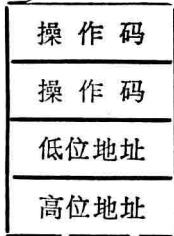 操作码
操作码
低位地址
高位地址